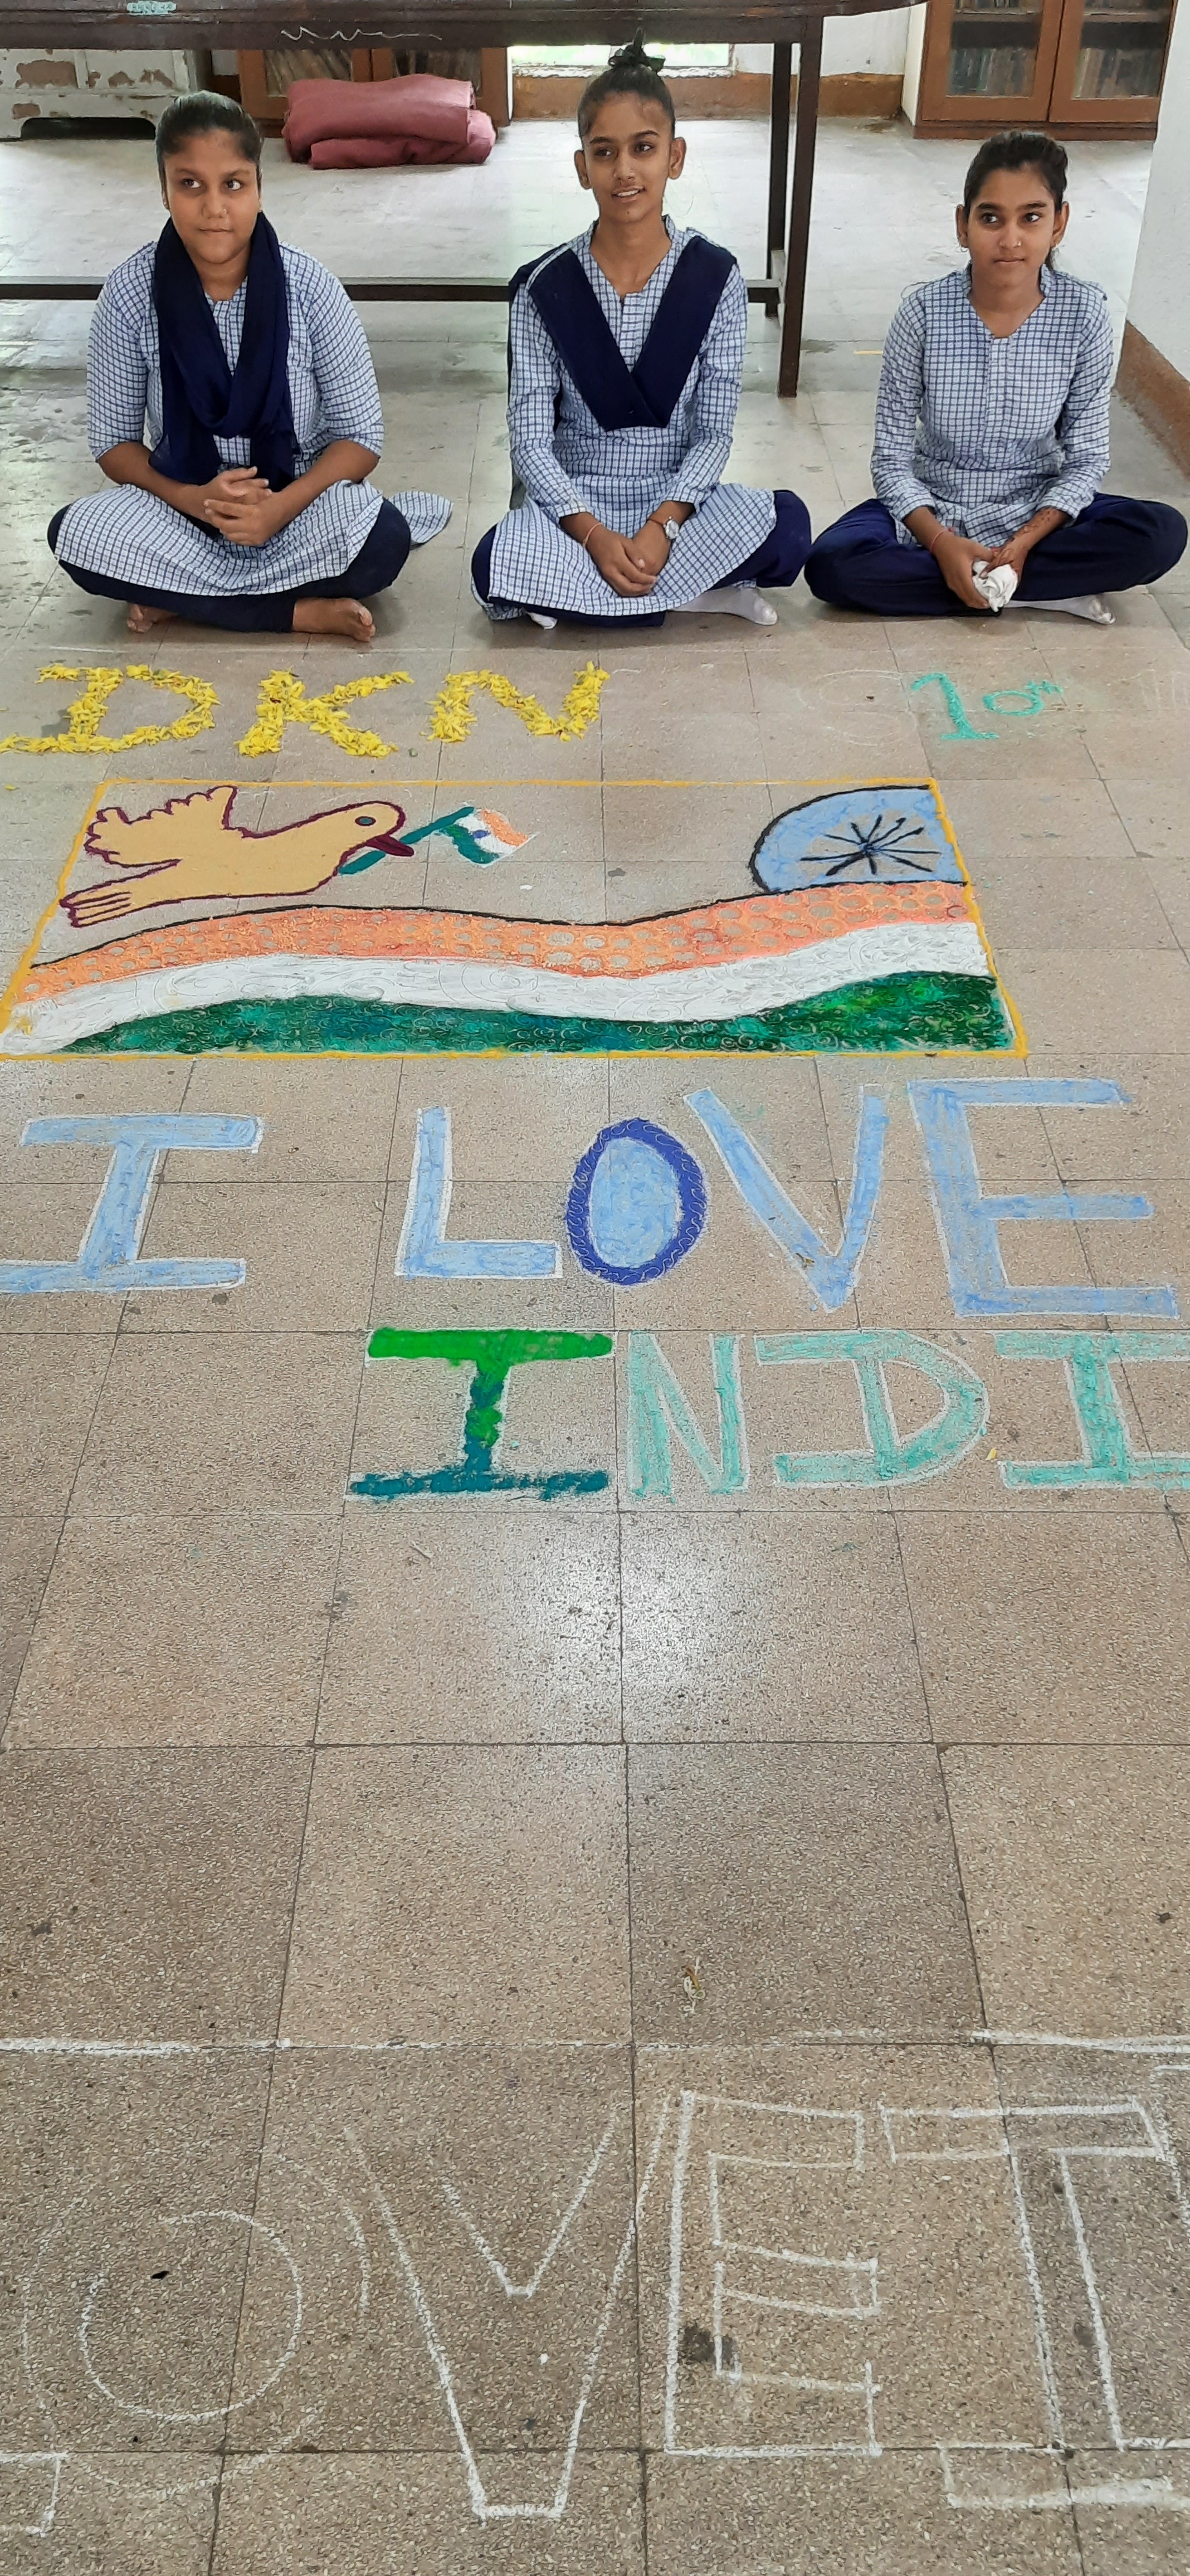 DKN 10th
I LOVE
INDI
OVE I